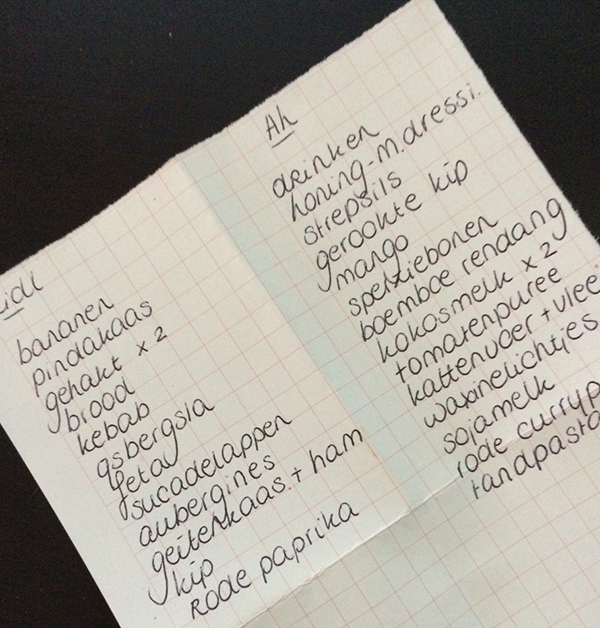 Lidl
bananen
pindakaas
gehakt x 2
brood
kebab
ijsbergsla
feta
sucadelappen
aubergines
geitenkaas + ham
kip
Rode paprika
Ah
drinken
honing-m.dressi.
strepsils
gerookte kip
mango
sperziebonen
boemboe rendang
kokosmelk x 2
tomatenpuree
kattenvoer + vlee
waxinelichtjes
sojamelk
rode curryp
tandpasta